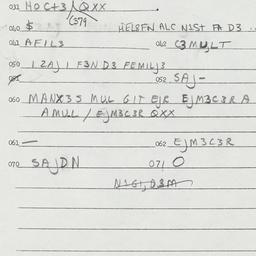 031 HOC+3 / QXX
C379
040 $ HELSFN ALC N1ST FA D3 ..
041 AFIL3 042 C3MULT
050 1 2AJ 1 F3N D3 FEMILJ3
051 052 SAJ-
060 MANX35 MUL GIT EJR EJM3C3R A
AMUL / EJM3C3R QXX
061 — 062 EJM3C3R
070 SAJDN 071 O
N1GI, D3M